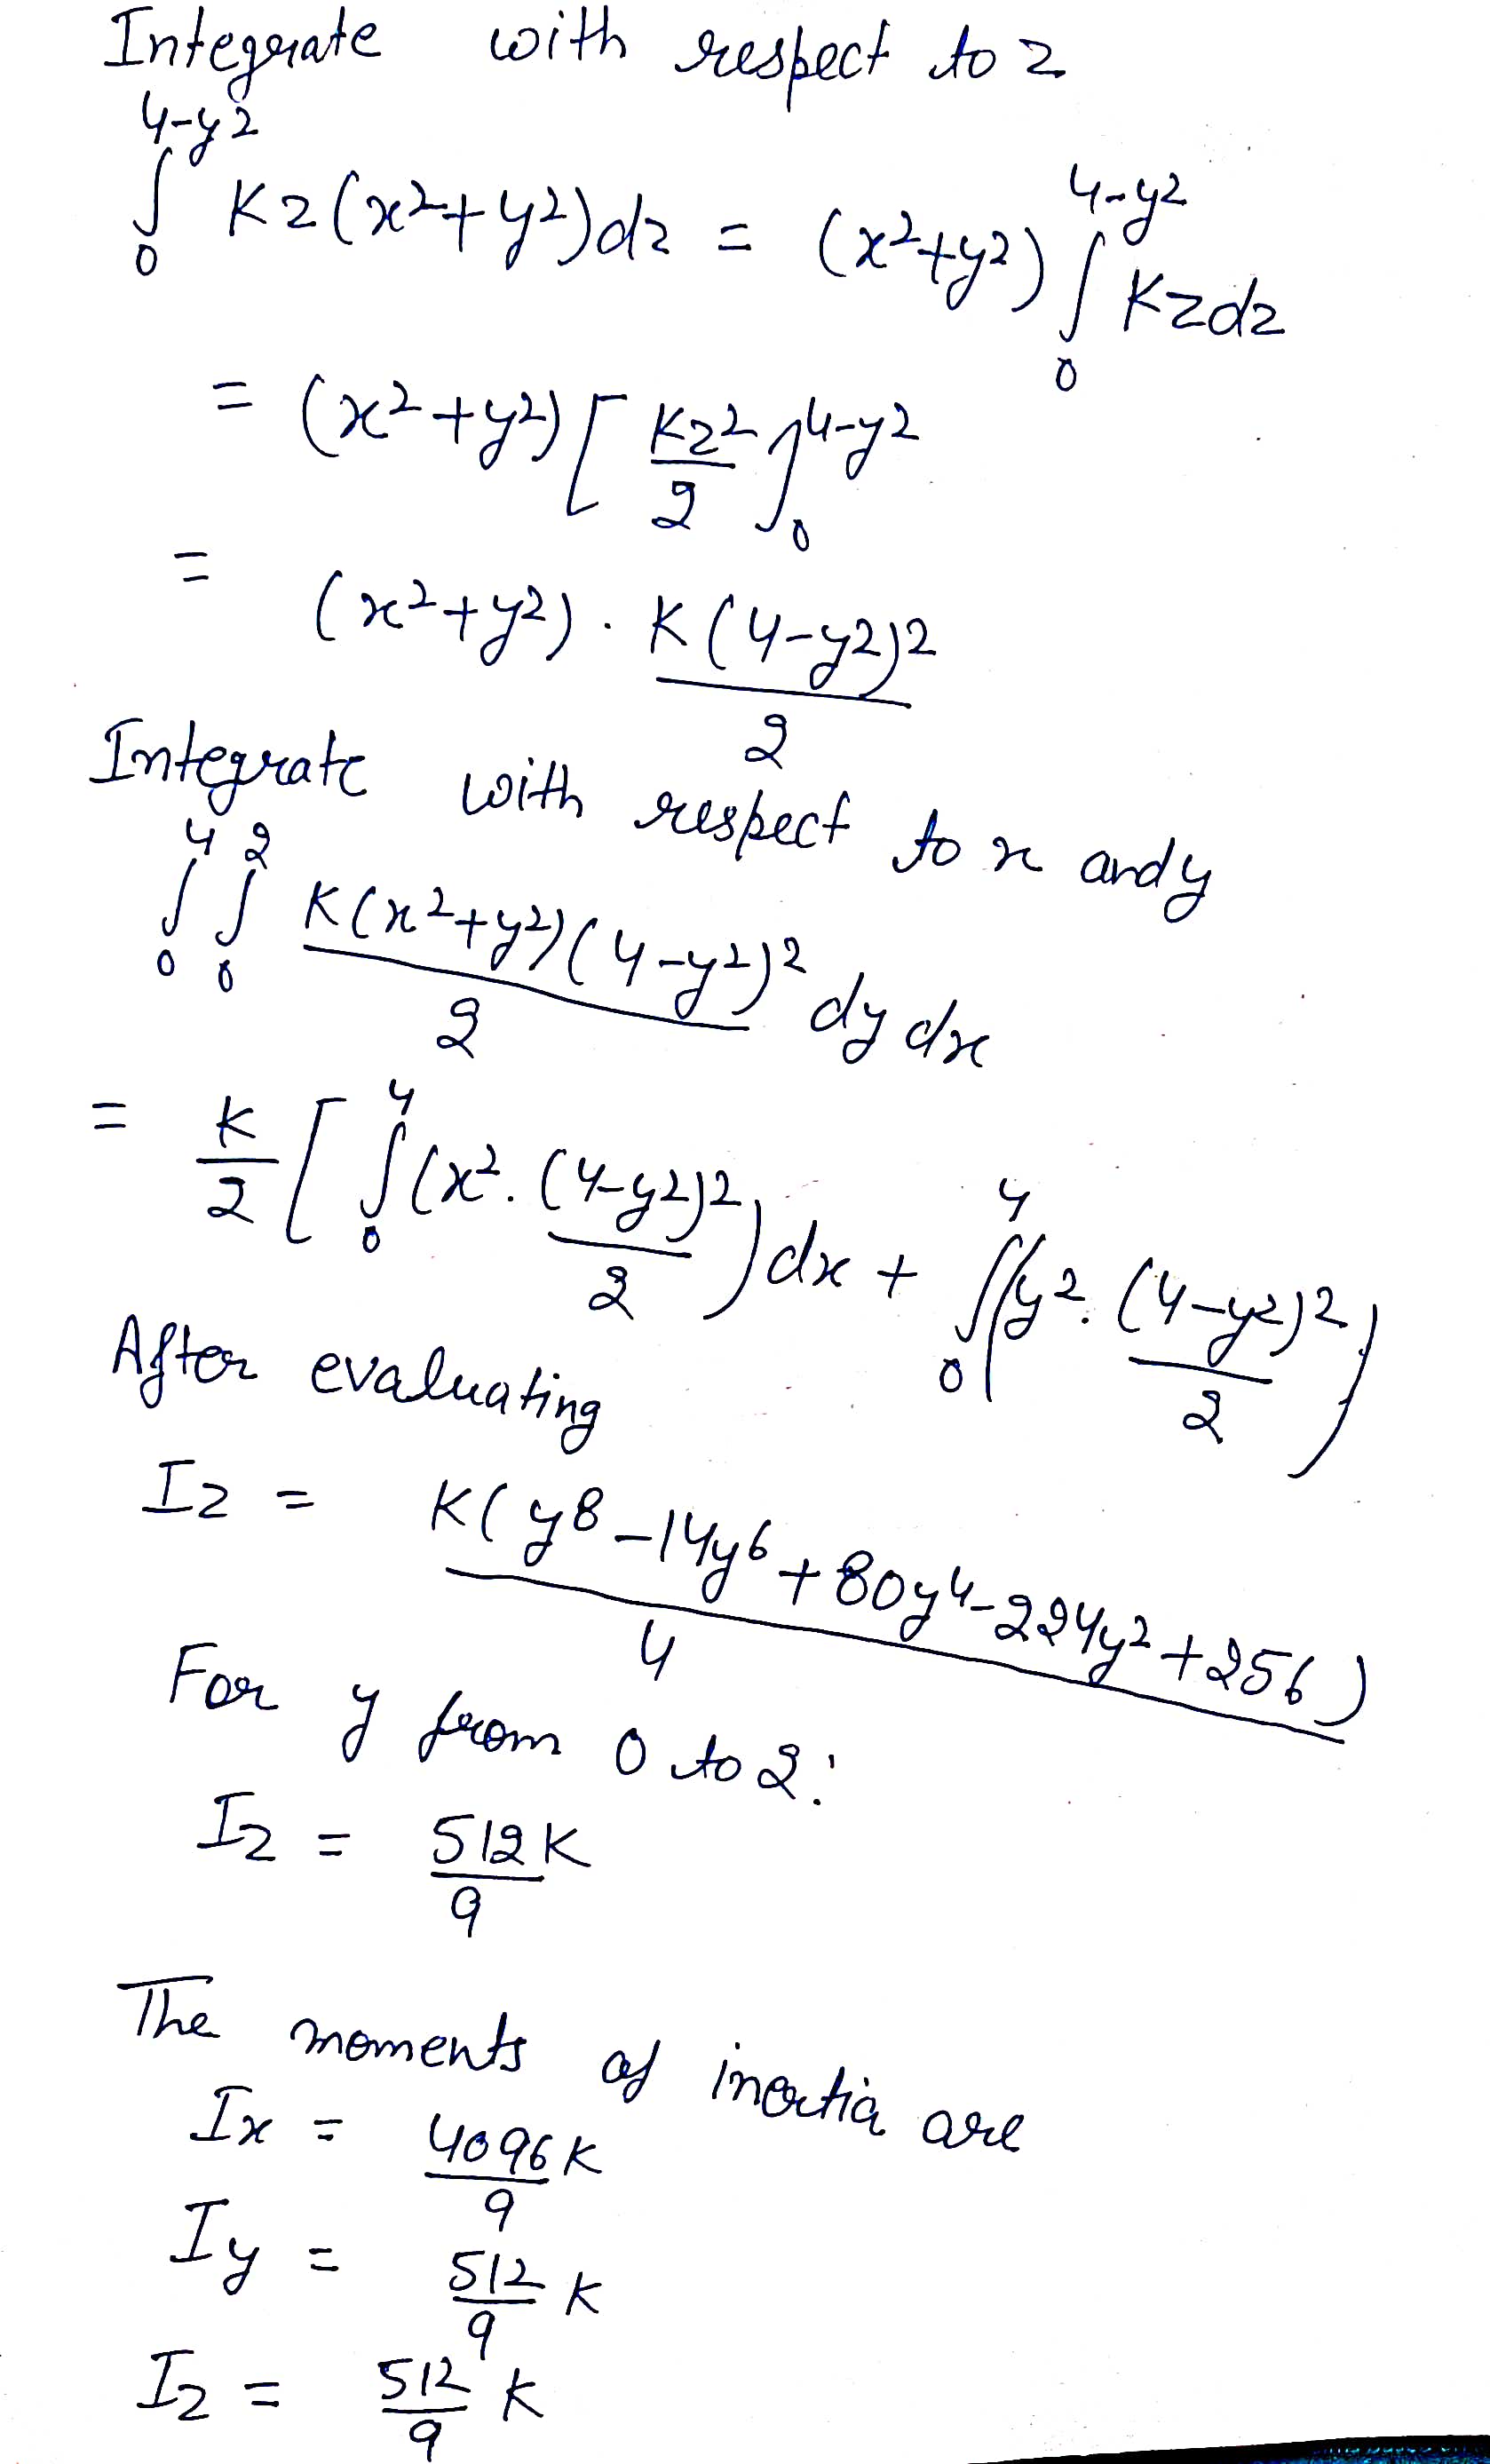 Integrate with respect to z
∫₀^{4-y2} Kz(x²+y²)dz = (x²+y²) ∫₀^{4-y2} Kzdz
= (x²+y²) [Kz²/2]₀^{4-y2}
= (x²+y²) · K(4-y2)2/2
Integrate with respect to x and y
∫₀^4 ∫₀^2 K(x²+y²)(4-y²)²/2 dy dx
= K/2 [ ∫₀^4 (x². (4-y2)2/2) dx + ∫₀^4 (y². (4-y2)2/2)
After evaluating
Iz = K(y8-14y6+80y4-224y2+256)/4
For y from 0 to 2:
Iz = 512K/9
The moments of inertia are
Ix = 4096K/9
Iy = 512/9 K
Iz = 512/9 K